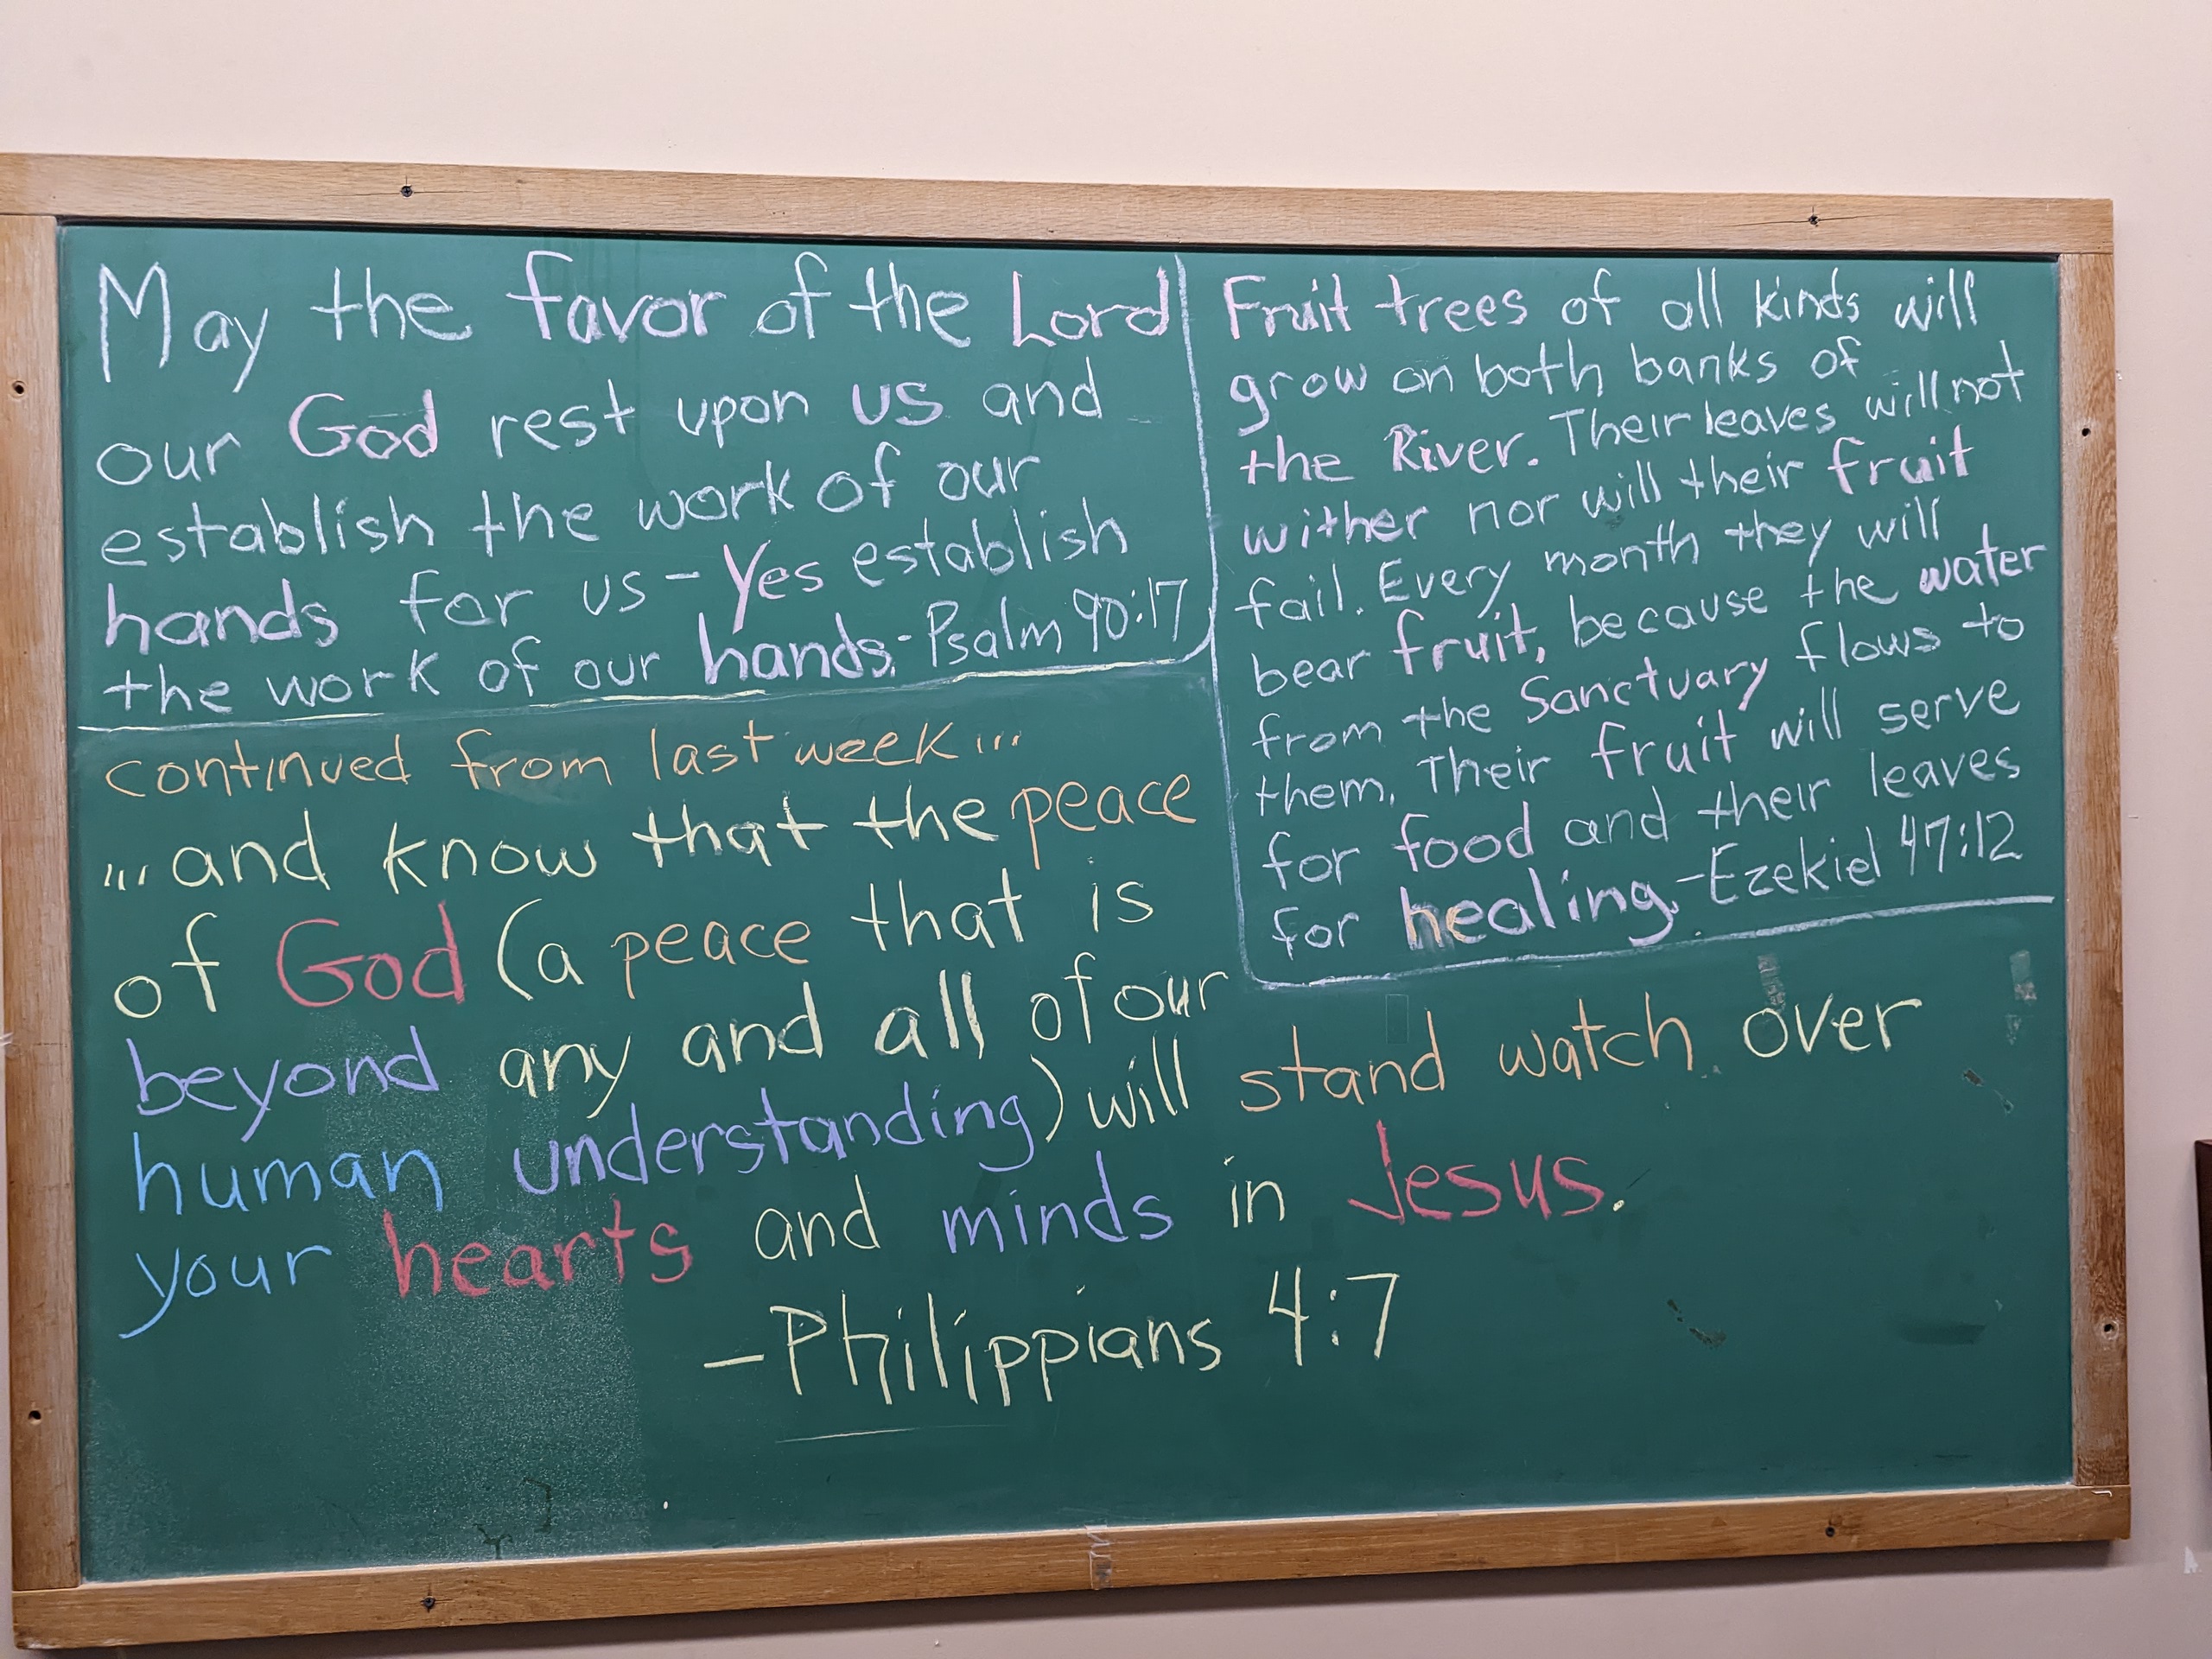 May the favor of the Lord
our God rest upon us and
establish the work of our
hands for us - Yes establish
the work of our hands. - Psalm 90:17
Fruit trees of all kinds will
grow on both banks of
the River. Their leaves will not
wither nor will their fruit
fail. Every month they will
bear fruit, because the water
from the Sanctuary flows to
them. Their fruit will serve
for food and their leaves
for healing. - Ezekiel 47:12
continued from last week...
...and know that the peace
of God (a peace that is
beyond any and all of our
human understanding) will stand watch over
your hearts and minds in Jesus.
- Philippians 4:7